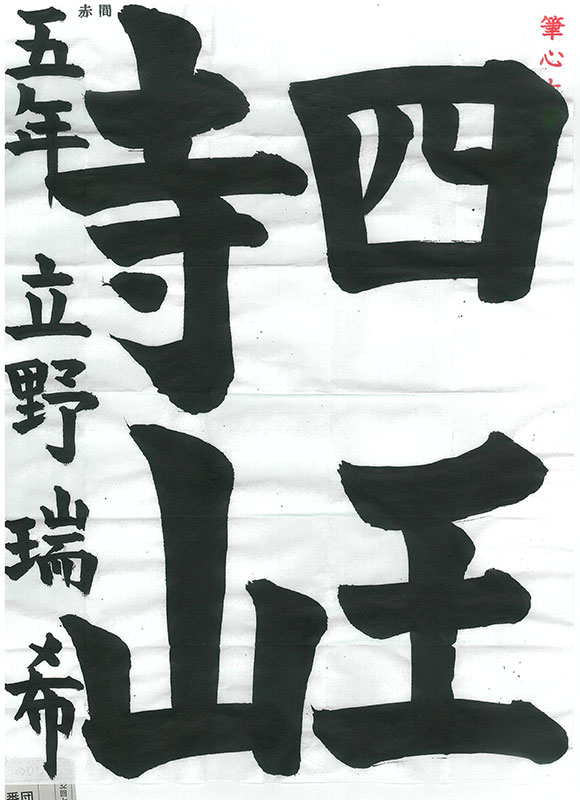 筆心
四王
寺山
赤間
五年 立野瑞希